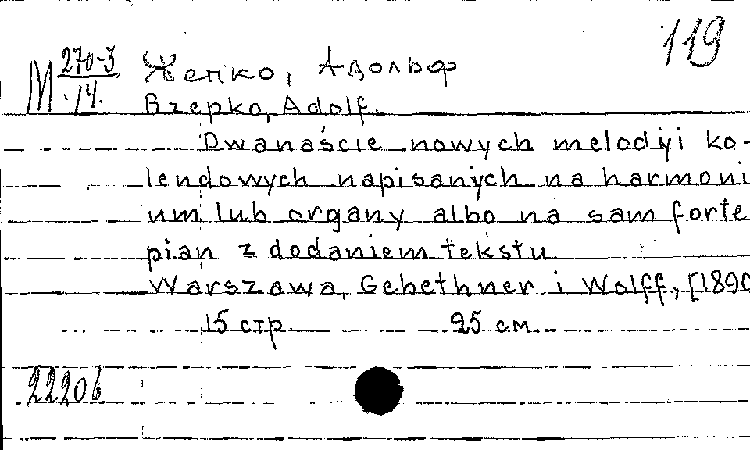 119
М 270-3 Жепко, Адольф
14. Rzepko, Adolf.
Dwanaście nowych melodyi ko-
lendowych napisanych na harmoni
um lub organy albo na sam forte
pian z dodaniem tekstu
Warszawa, Gebethner i Wolff, [1890
15 стр 25 см
22206